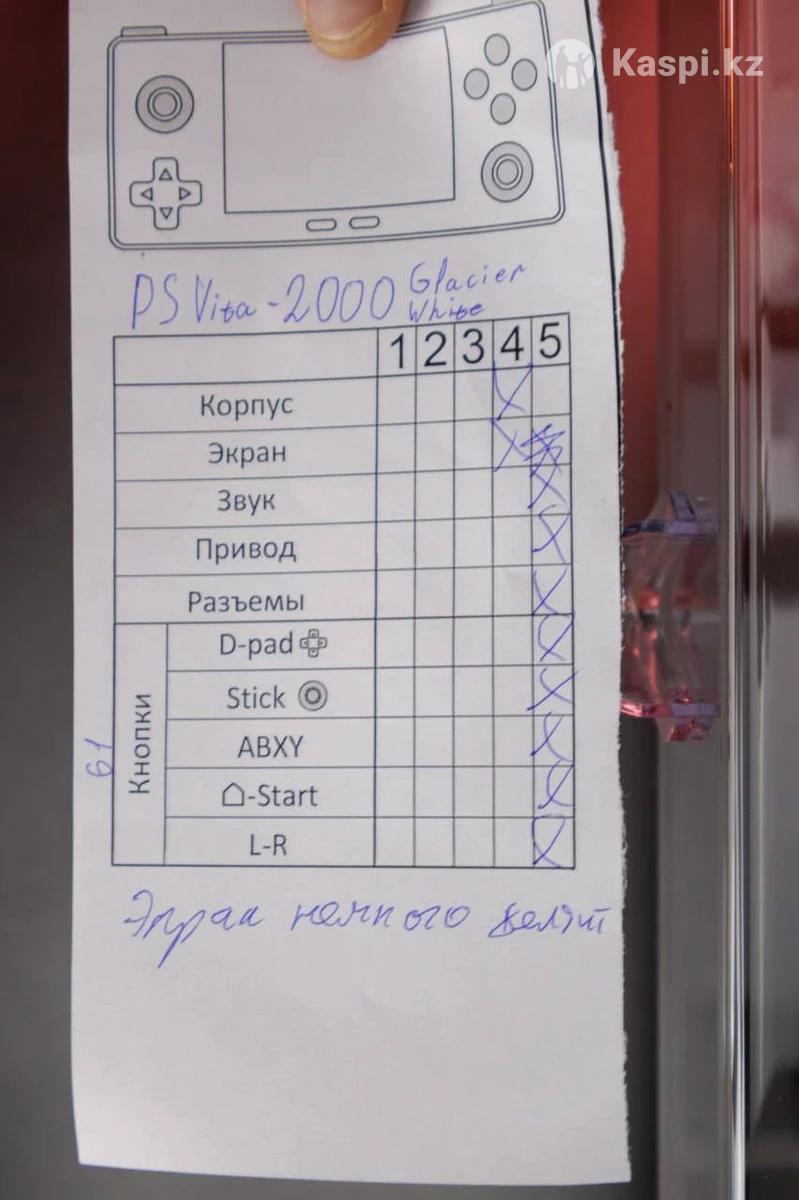 Kaspi.kz
PS Vita-2000 Glacier White
1 2 3 4 5
Корпус
Экран
Звук
Привод
Разъемы
Кнопки
D-pad
Stick
ABXY
-Start
L-R
61
Экран немного желтит